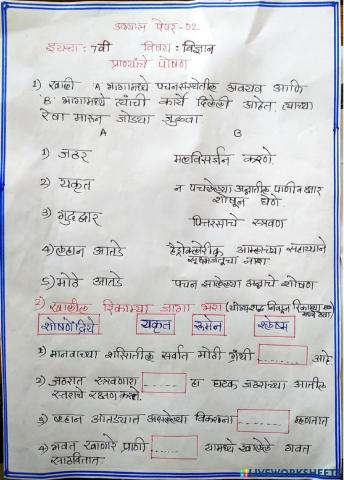 अभ्यास पेपर -02
इयत्ता : 7वी विषय : विज्ञान
प्राण्यांचे पोषण
1) खाली 'A' भागामध्ये पचनसंस्थेतील अवयव आणि
'B' भागामध्ये त्यांची कार्ये दिलेली आहेत. त्याच्या
रेषा मारून जोड्या जुळवा
A B
1) जठर मलविसर्जन करणे.
2) यकृत न पचलेल्या अन्नातील पाणी व क्षार
शोषून घेणे
3) गुदद्वार पित्तरसाचे स्त्रवण
4) लहान आतडे हैड्रोक्लोरीक आम्लाच्या सहाय्याने
सूक्ष्मजंतूचा नाश
5) मोठे आतडे पचन झालेल्या अन्नाचे शोषण
2) खालील रिकाम्या जागा भरा (योग्य शब्द निवडून रिकाम्या
शोषण द्विपे यकृत रुमेन श्लेष्म
1) मानवाच्या शरीरातील सर्वात मोठी ग्रंथी ------ आहे
2) जठरात स्त्रवणारा ----- हा घटक जठराच्या आतील
स्तराचे रक्षण करतो.
3) लहान आतड्यात असलेल्या विकरांना ------ म्हणतात
4) गवत खाणारे प्राणी ------ यामध्ये खाल्लेले गवत
साठवितात.
LIVEWORKSHEETS